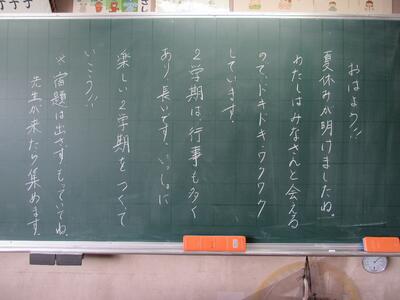 おはよう!!
夏休みが明けましたね。
わたしはみなさんと会える
ので、ドキドキ・ワクワク
しています。
2学期は、行事も多く
あり長いです。いっしょに
楽しい2学期をつくて
いこう!!
※宿題は出さずもっていてね。
先生が来たら集めます。